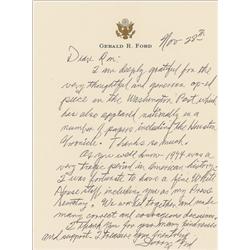 GERALD R. FORD
Nov 28th
Dear Ron:
I am deeply grateful for the
very thoughtful and generous op-ed
piece in the Washington Post, which
has also appeared nationally in a
number of papers, including the Houston
Chronicle. Thanks so much.
As you well know 1974 was a
very tragic period in American history.
I was fortunate to have a fine White
House staff, including you as my Press
Secretary. We worked together and made
many correct and courageous decisions.
I thank you for your many kindnesses
and support. I treasure your friendship.
Jerry Ford